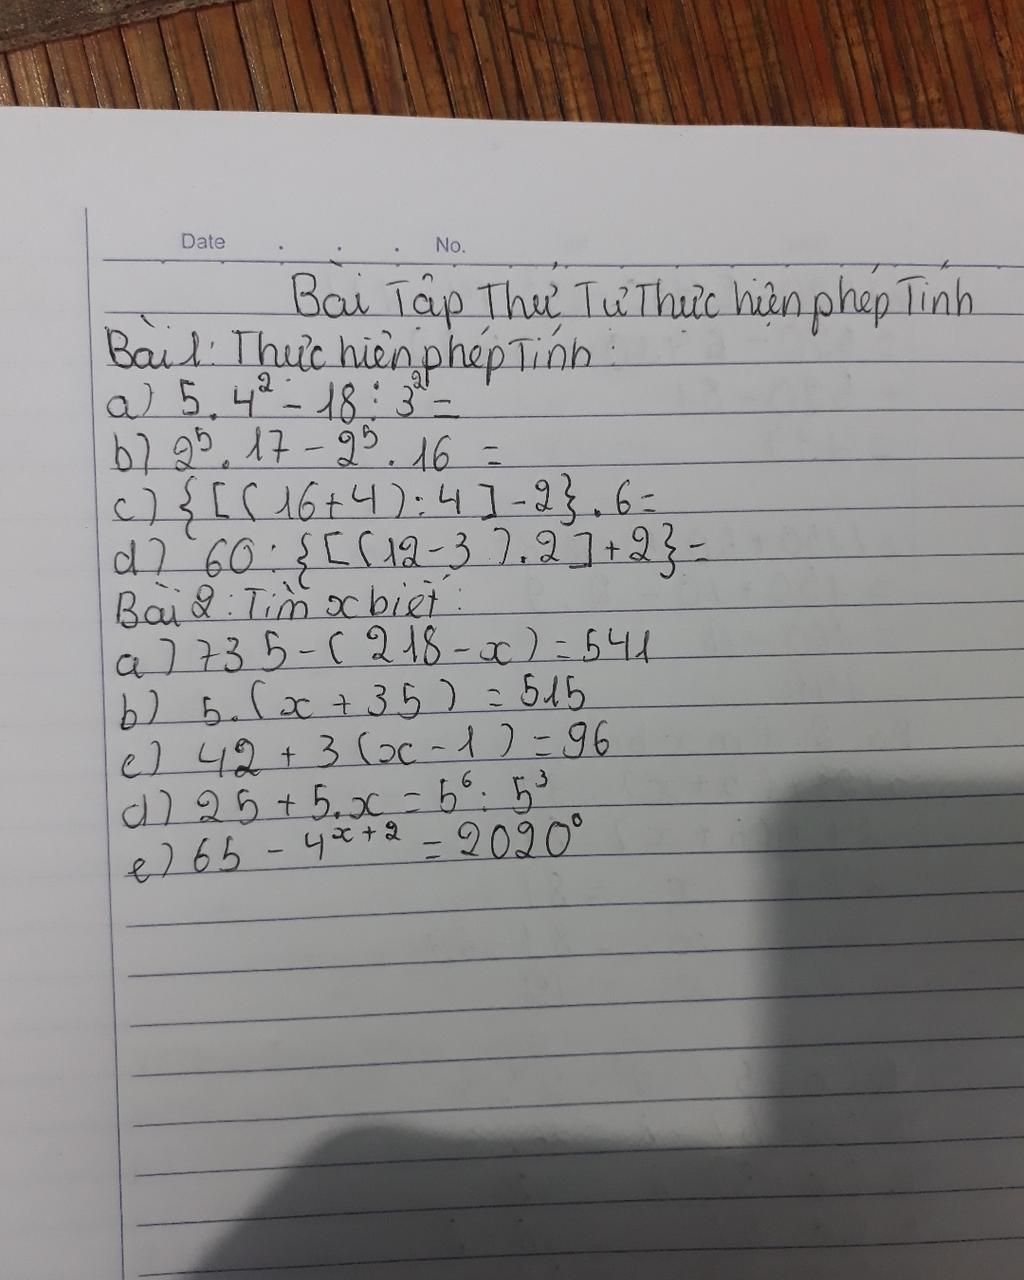 Date . . . No.
Bài Tập Thứ Tự Thực hiện phép Tính
Bài 1: Thực hiện phép Tính:
a) 5.4² - 18 : 3² =
b) 2⁵.17 - 2⁵.16 =
c) {[(16+4):4]-2}.6=
d) 60:{[(12-3).2]+2}=
Bài 2: Tìm x biết:
a) 735-(218-x)=541
b) 5.(x+35)=515
c) 42+3(x-1)=96
d) 25+5.x=5⁶:5³
e) 65-4ˣ⁺²=2020⁰